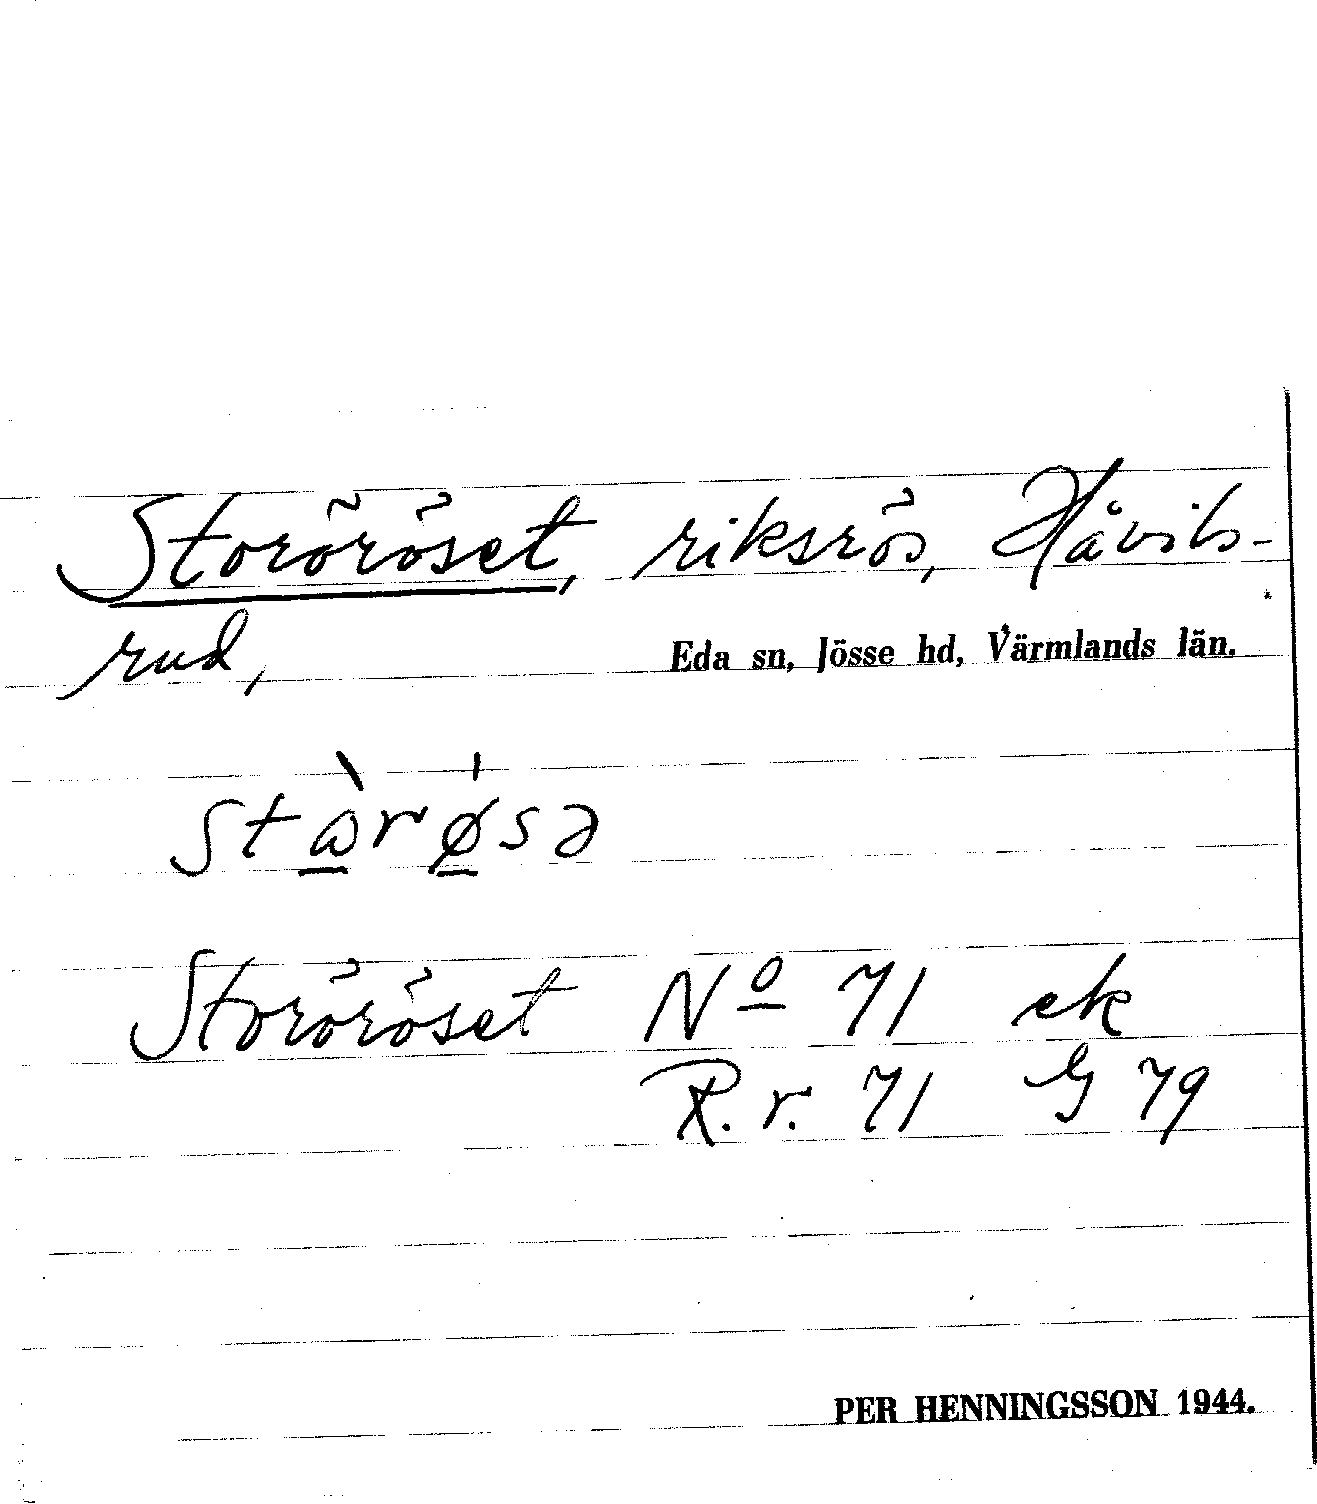 Storöröset, riksrös, Håvils-
rud, Eda sn, Jösse hd, Värmlands län.
Storöröset Nº 71 ek
R. r. 71 G 79
PER HENNINGSSON 1944.